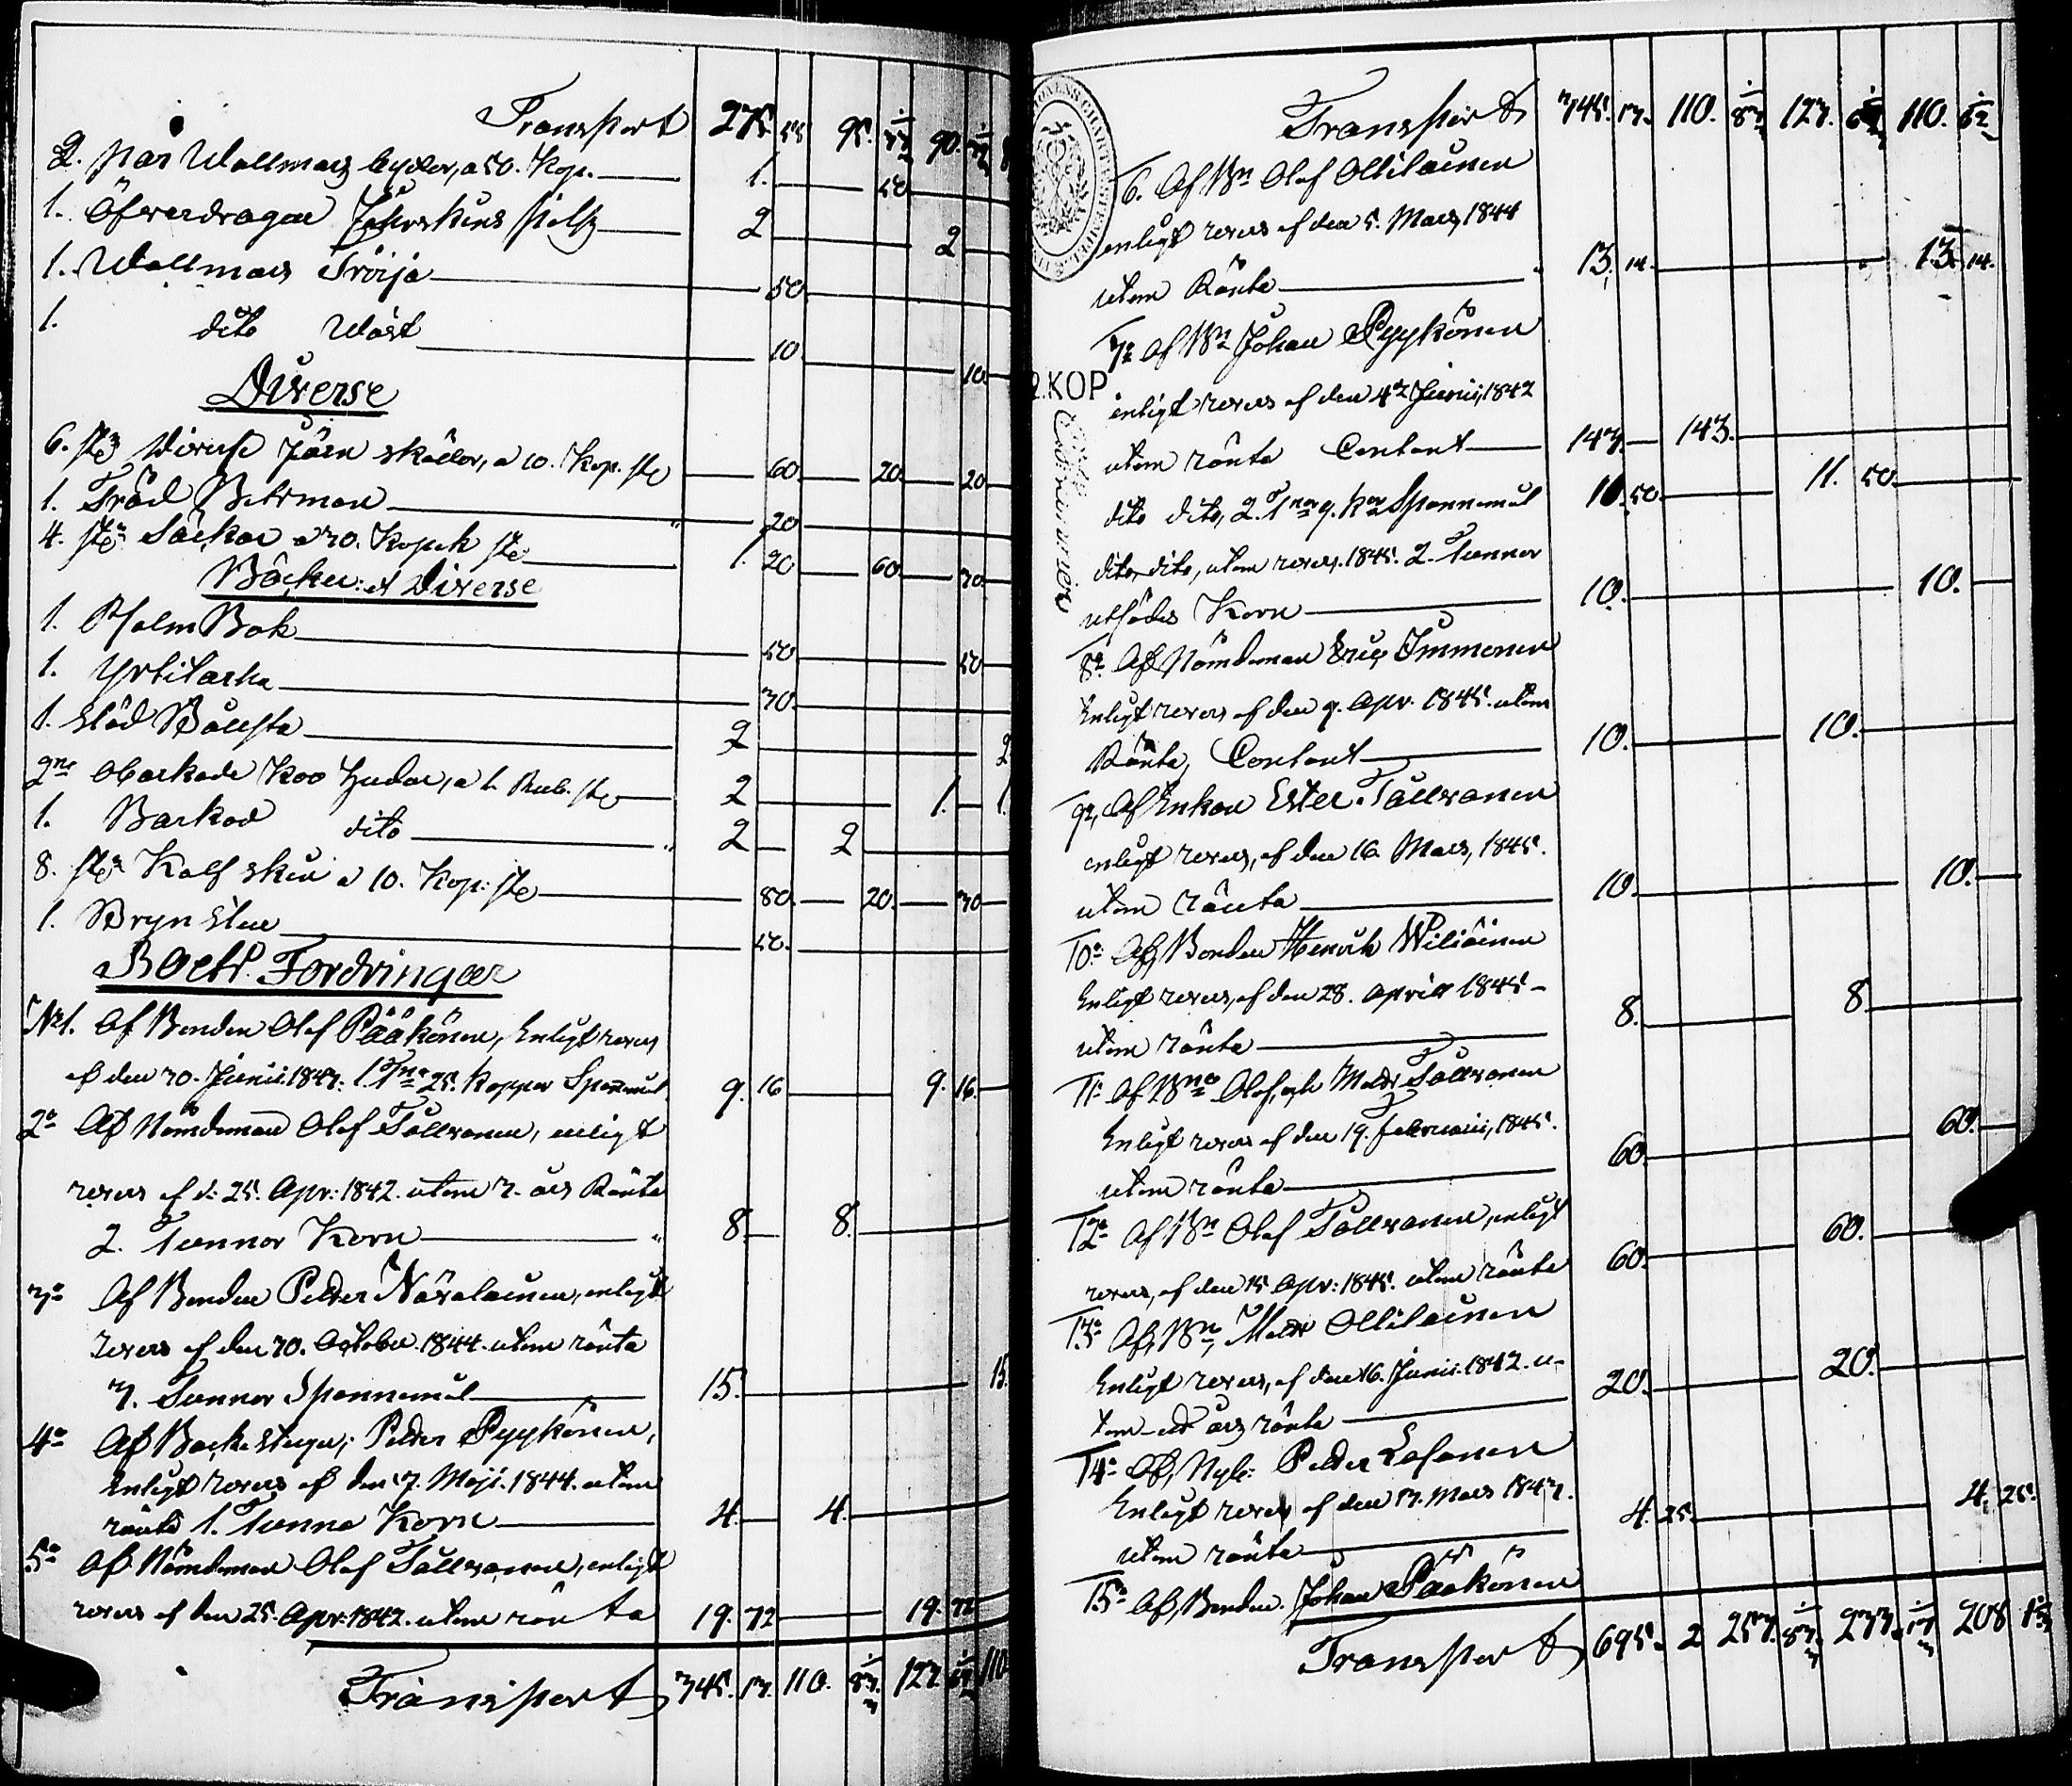 Transport 275. 55 95. 90.
2. par Wallmars byxor, a 50. Kop. 1. 50
1. Öfverdragen Fårskins päls 2 2
1. Wallmars Tröija 50
1. dito Wäst 10 10
Diverse
6. st: diverse Järn skållor, a 10. Kop. st 60 20 20
1. Träd Betsman 20
4. st: Säckar a 30. Kopek st 1. 20 60 30
Böcker: et Diverse
1. Psalm Bok 50 50
1. Yrtitarha 30
1. Städ 2 2
2ne Obarkade Koo hudar, a 1. Rub. st 2 1. 1.
1. Barkad dito 2 2
8. st: Kalf skin a 10. Kop: st 80 20 30
1. Bryn sten 50.
Boets Fordringar
No 1. Af Bonden Olof Pääkönen, Enligt revers
af den 30. Junii. 1843. 1 Tna 25. Kappar Spanmål 9. 16 9. 16
2o Af Nämdeman Olof Tallvanen, enligt
revers af d: 25. Apr: 1842. utom 3. års Ränta
2. Tunnor Korn 8 8.
3o Af Bonden Petter Näväläinen, enligt
revers af den 30. October. 1844. utom ränta
3. Tunnor Spannemål 15. 15
4o Af Backestugu: Petter Pyykönen,
Enligt revers af den 7. Maji. 1844. utom
ränta 1. Tunna Korn 4. 4.
5o Af Nämdeman Olof Tallvanen, enligt
revers af den 25. Apr: 1842. utom ränta 19. 72 19. 72
Transport 345. 13. 110. 83 123. 110
Transport 345. 13. 110. 83 123. 110.
2. KOP
6. Af Bn Olof Ollilainen
enligt revers af den 5. Mars, 1844
utom Ränta 13. 14. 13. 14.
7o Af Bn Johan Pyykönen
enligt revers af den 4de Junii, 1842
utom ränta Contant 143. 143.
dito dito, 2. Tnor 9. kar Spannemål 11. 50 11. 50
dito dito, utom revers. 1845. 2. Tunnor
utsädes Korn 10. 10.
8o Af Nämdeman Eric Immonen
Enligt revers af den 9. Apr. 1845. utom
Ränta, Contant 10. 10.
9o, Af Enkan Ester Tallvanen
enligt revers, af den 16. Mars, 1845.
utom ränta 10. 10.
10o Af Bonden Henrik Wiliäinen
Enligt revers, af den 28. April 1845 -
utom ränta 8. 8
11o Af Bne Olof, och Matts Tallvanen
Enligt revers af den 19. februarii, 1845.
utom ränta 60. 60.
12o Af Bn Olof Tallvanen, enligt
revers, af den 15 Apr: 1845. utom ränta 60. 60.
13o Af, Bn, Matts Ollilainen
Enligt revers, af den 16. Junii. 1842. u-
tom ett års ränta 20. 20.
14o Af, Nyb: Petter
Enligt revers af den 13. Mars 1843.
utom ränta 4. 25 4. 25.
15o Af, Bonden Johan Pääkönen
Transport 695. 2 257. 83. 233. 208